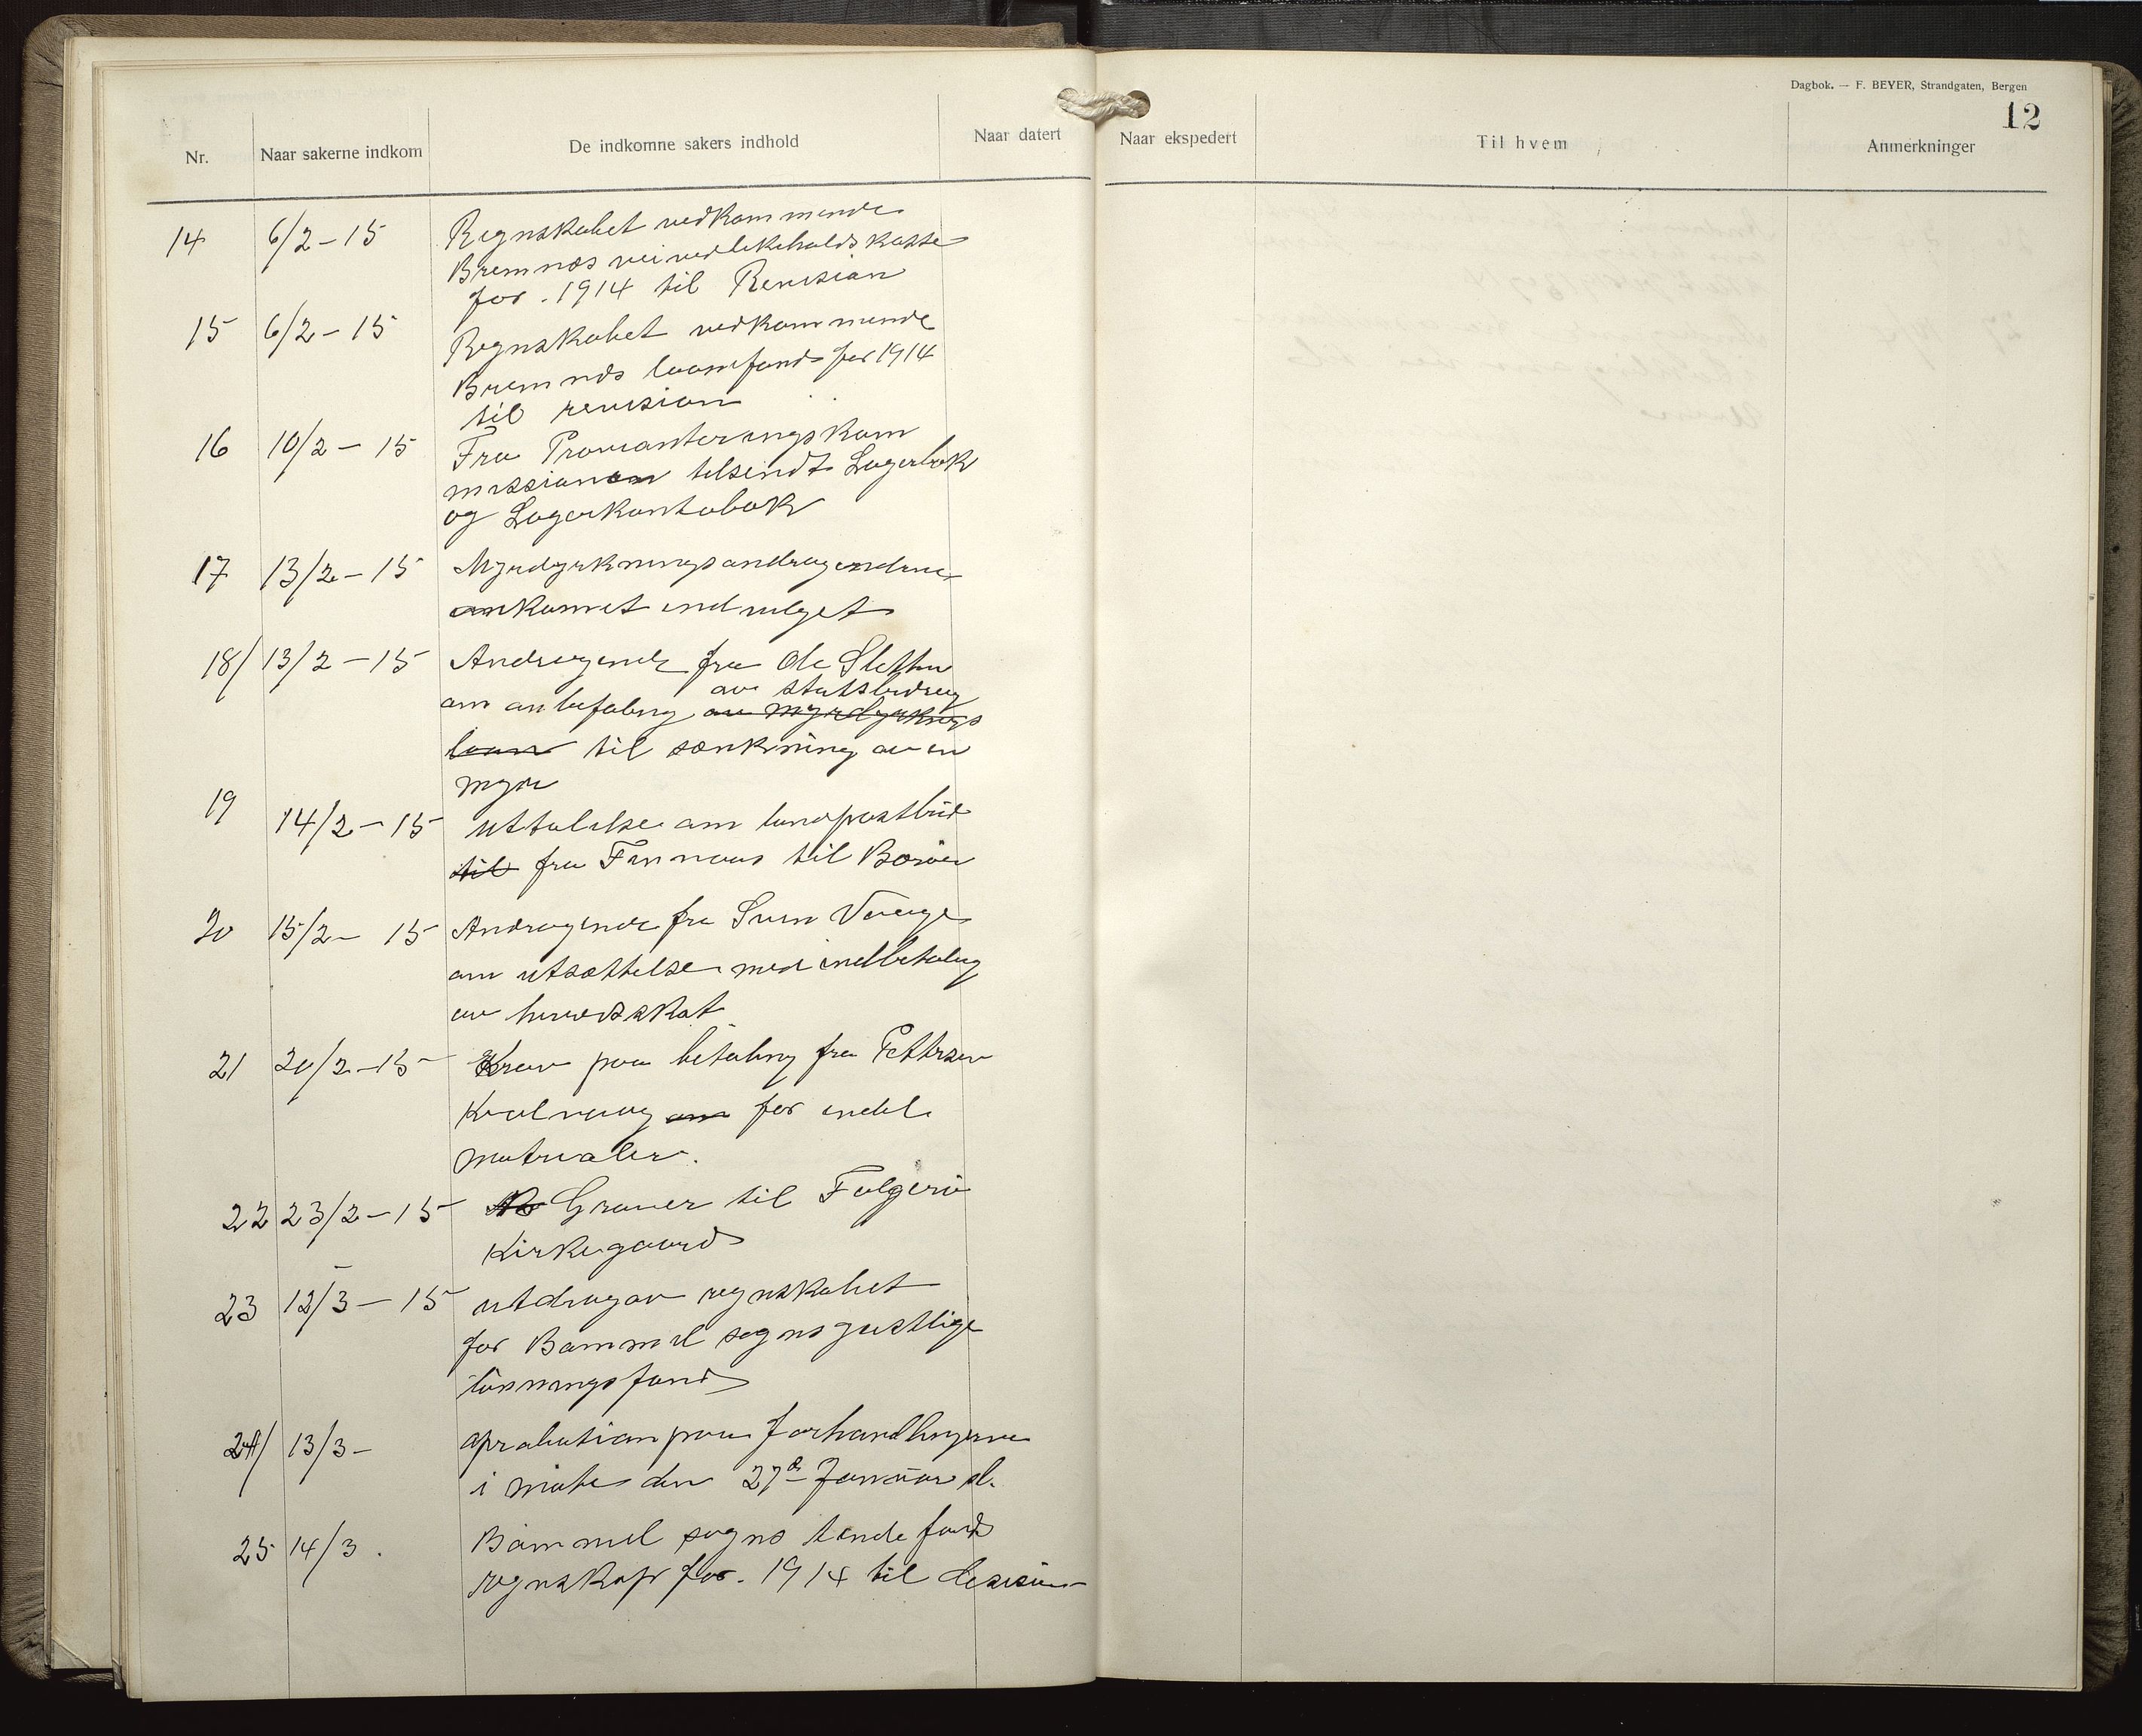 Dagbok. — F. BEYER, Strandgaten, Bergen
12
Nr. Naar sakerne indkom De indkomne sakers indhold Naar datert Naar ekspedert Til hvem Anmerkninger
14 6/2 - 15 Regnskabet vedkommende
Bremnes veivedlikeholdskasse
for . 1914 til Revision
15 6/2 - 15 Regnskabet vedkommende
Bremnes laanefond for 1914
til revision
16 10/2 - 15 Fra Provianteringskom
missionen tilsendt Lagerbok
og Lagerkontobok
17 13/2 - 15 Myrdyrkningsandragendene
ankommet indvilget
18/ 13/2 - 15 Andragende fra Ole Sletten
av statsbidrag
om anbefaling av myrdyrknings
laan til sænkning av en
myr
19 14/2 - 15 uttalelse om landpostbud
til fra Finnaas til Børøen
20 15/2 - 15 Andragende fra Sven Vaage
om utsættelse med indbetaling
av herredsskat
21 20/2 - 15 Krav paa betaling fra Pettersen
Kulvaag om for endel
matrialer.
22 23/2 - 15 Graver til Folgerö
Kirkegaard
23 12/3 - 15 utdrag av regnskabet
for Bømmel sogns geistlige
lönningsfond
24/ 13/3 - aprobation paa forhandlingerne
i möte den 27de Januar d.
25 14/3 . Bömmel sogns tiendefonds
regnskap for . 1914 til desision